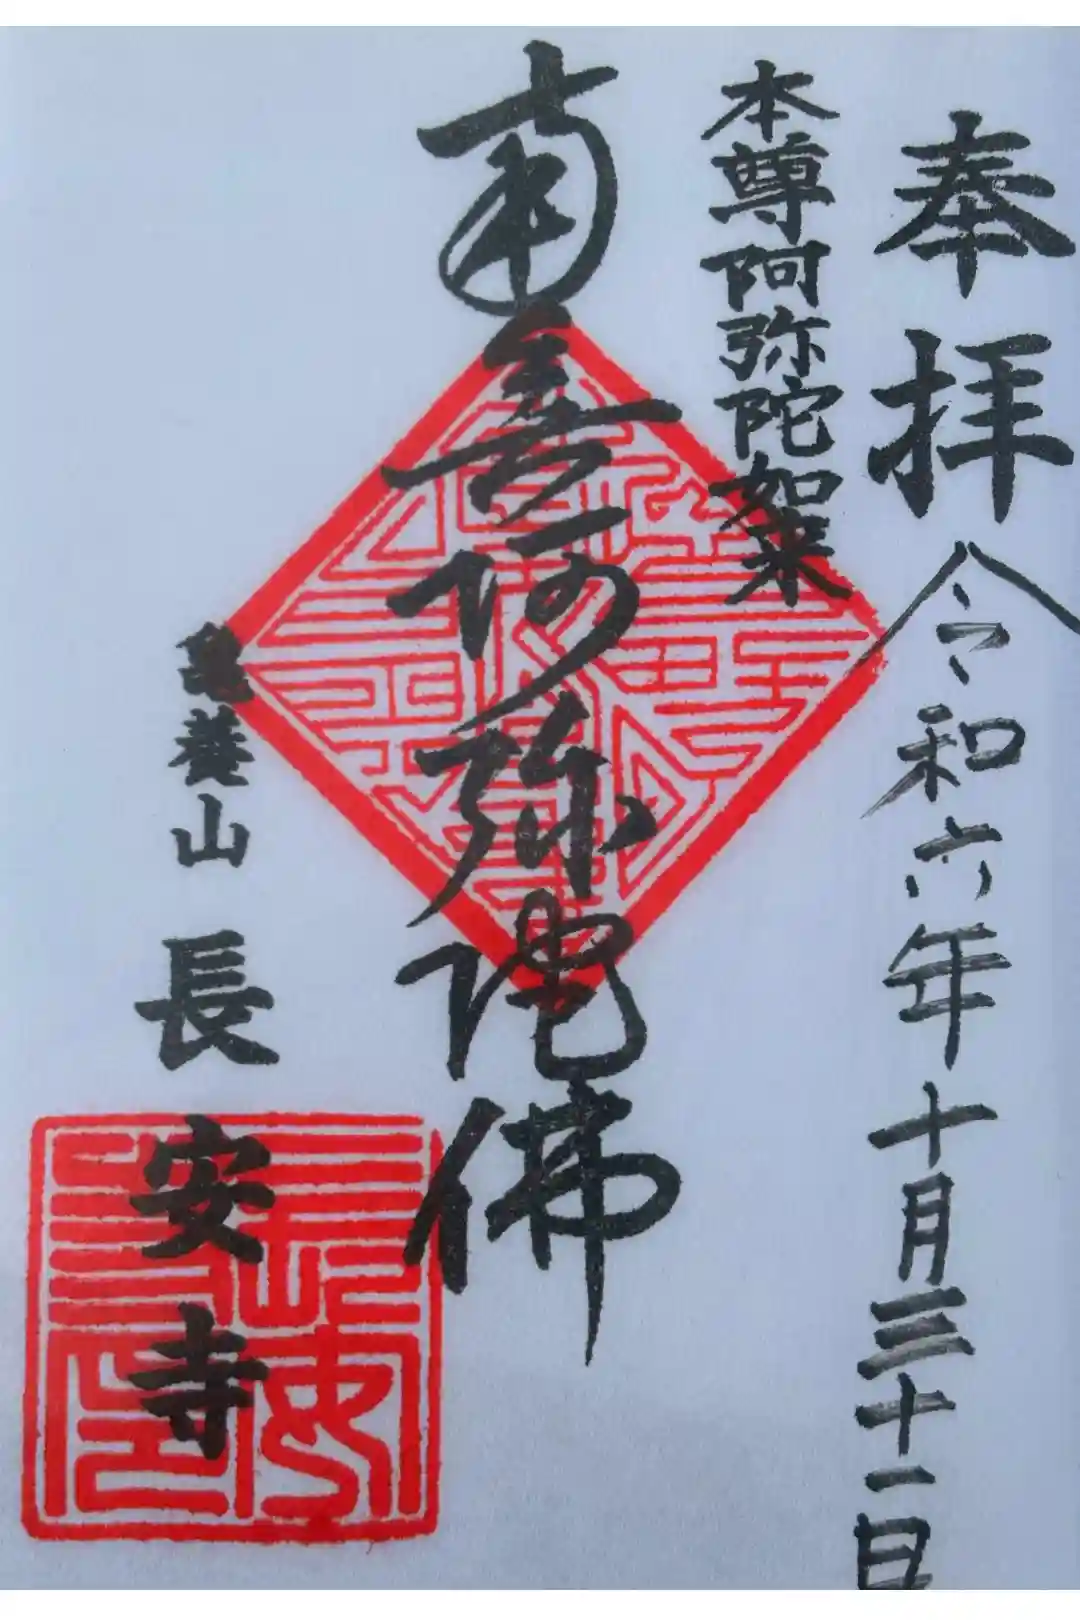 奉拝
令和六年十月三十一日
本尊阿弥陀如来
南無阿弥陀佛
亀養山
長安寺